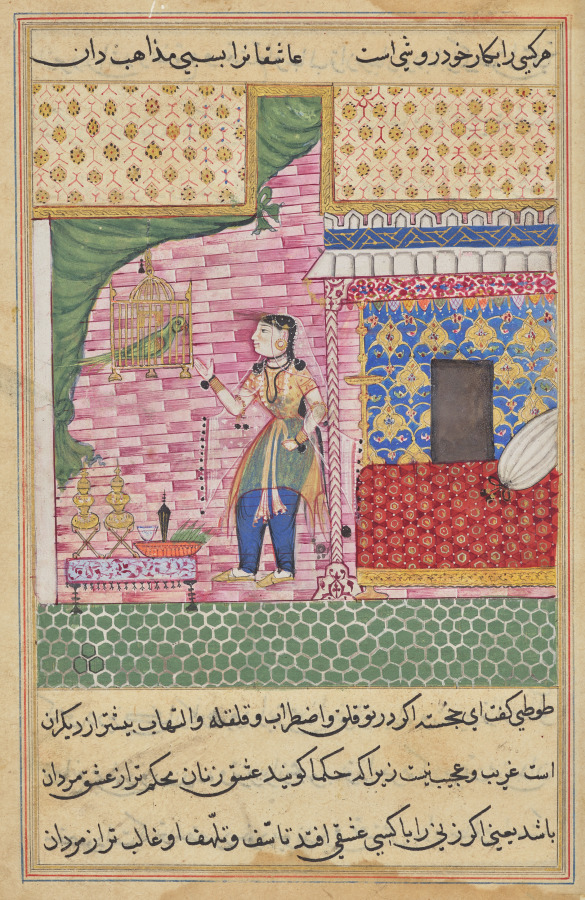 هر کسی را بکار خود روشی است عاشقانرا بسی مذاهب دان
طوطی کفت ای خجسته اکر در تو قلق و اضطراب و قلقله و التهاب بیشتر از دیکران
است غریب و عجیب نیست زیرا که حکما کویند عشق زنان محکم تر از عشق مردان
باشد یعنی اکر زنی را با کسی عشقی افتد تاسّف و تلهّف او غالب تر از مردان